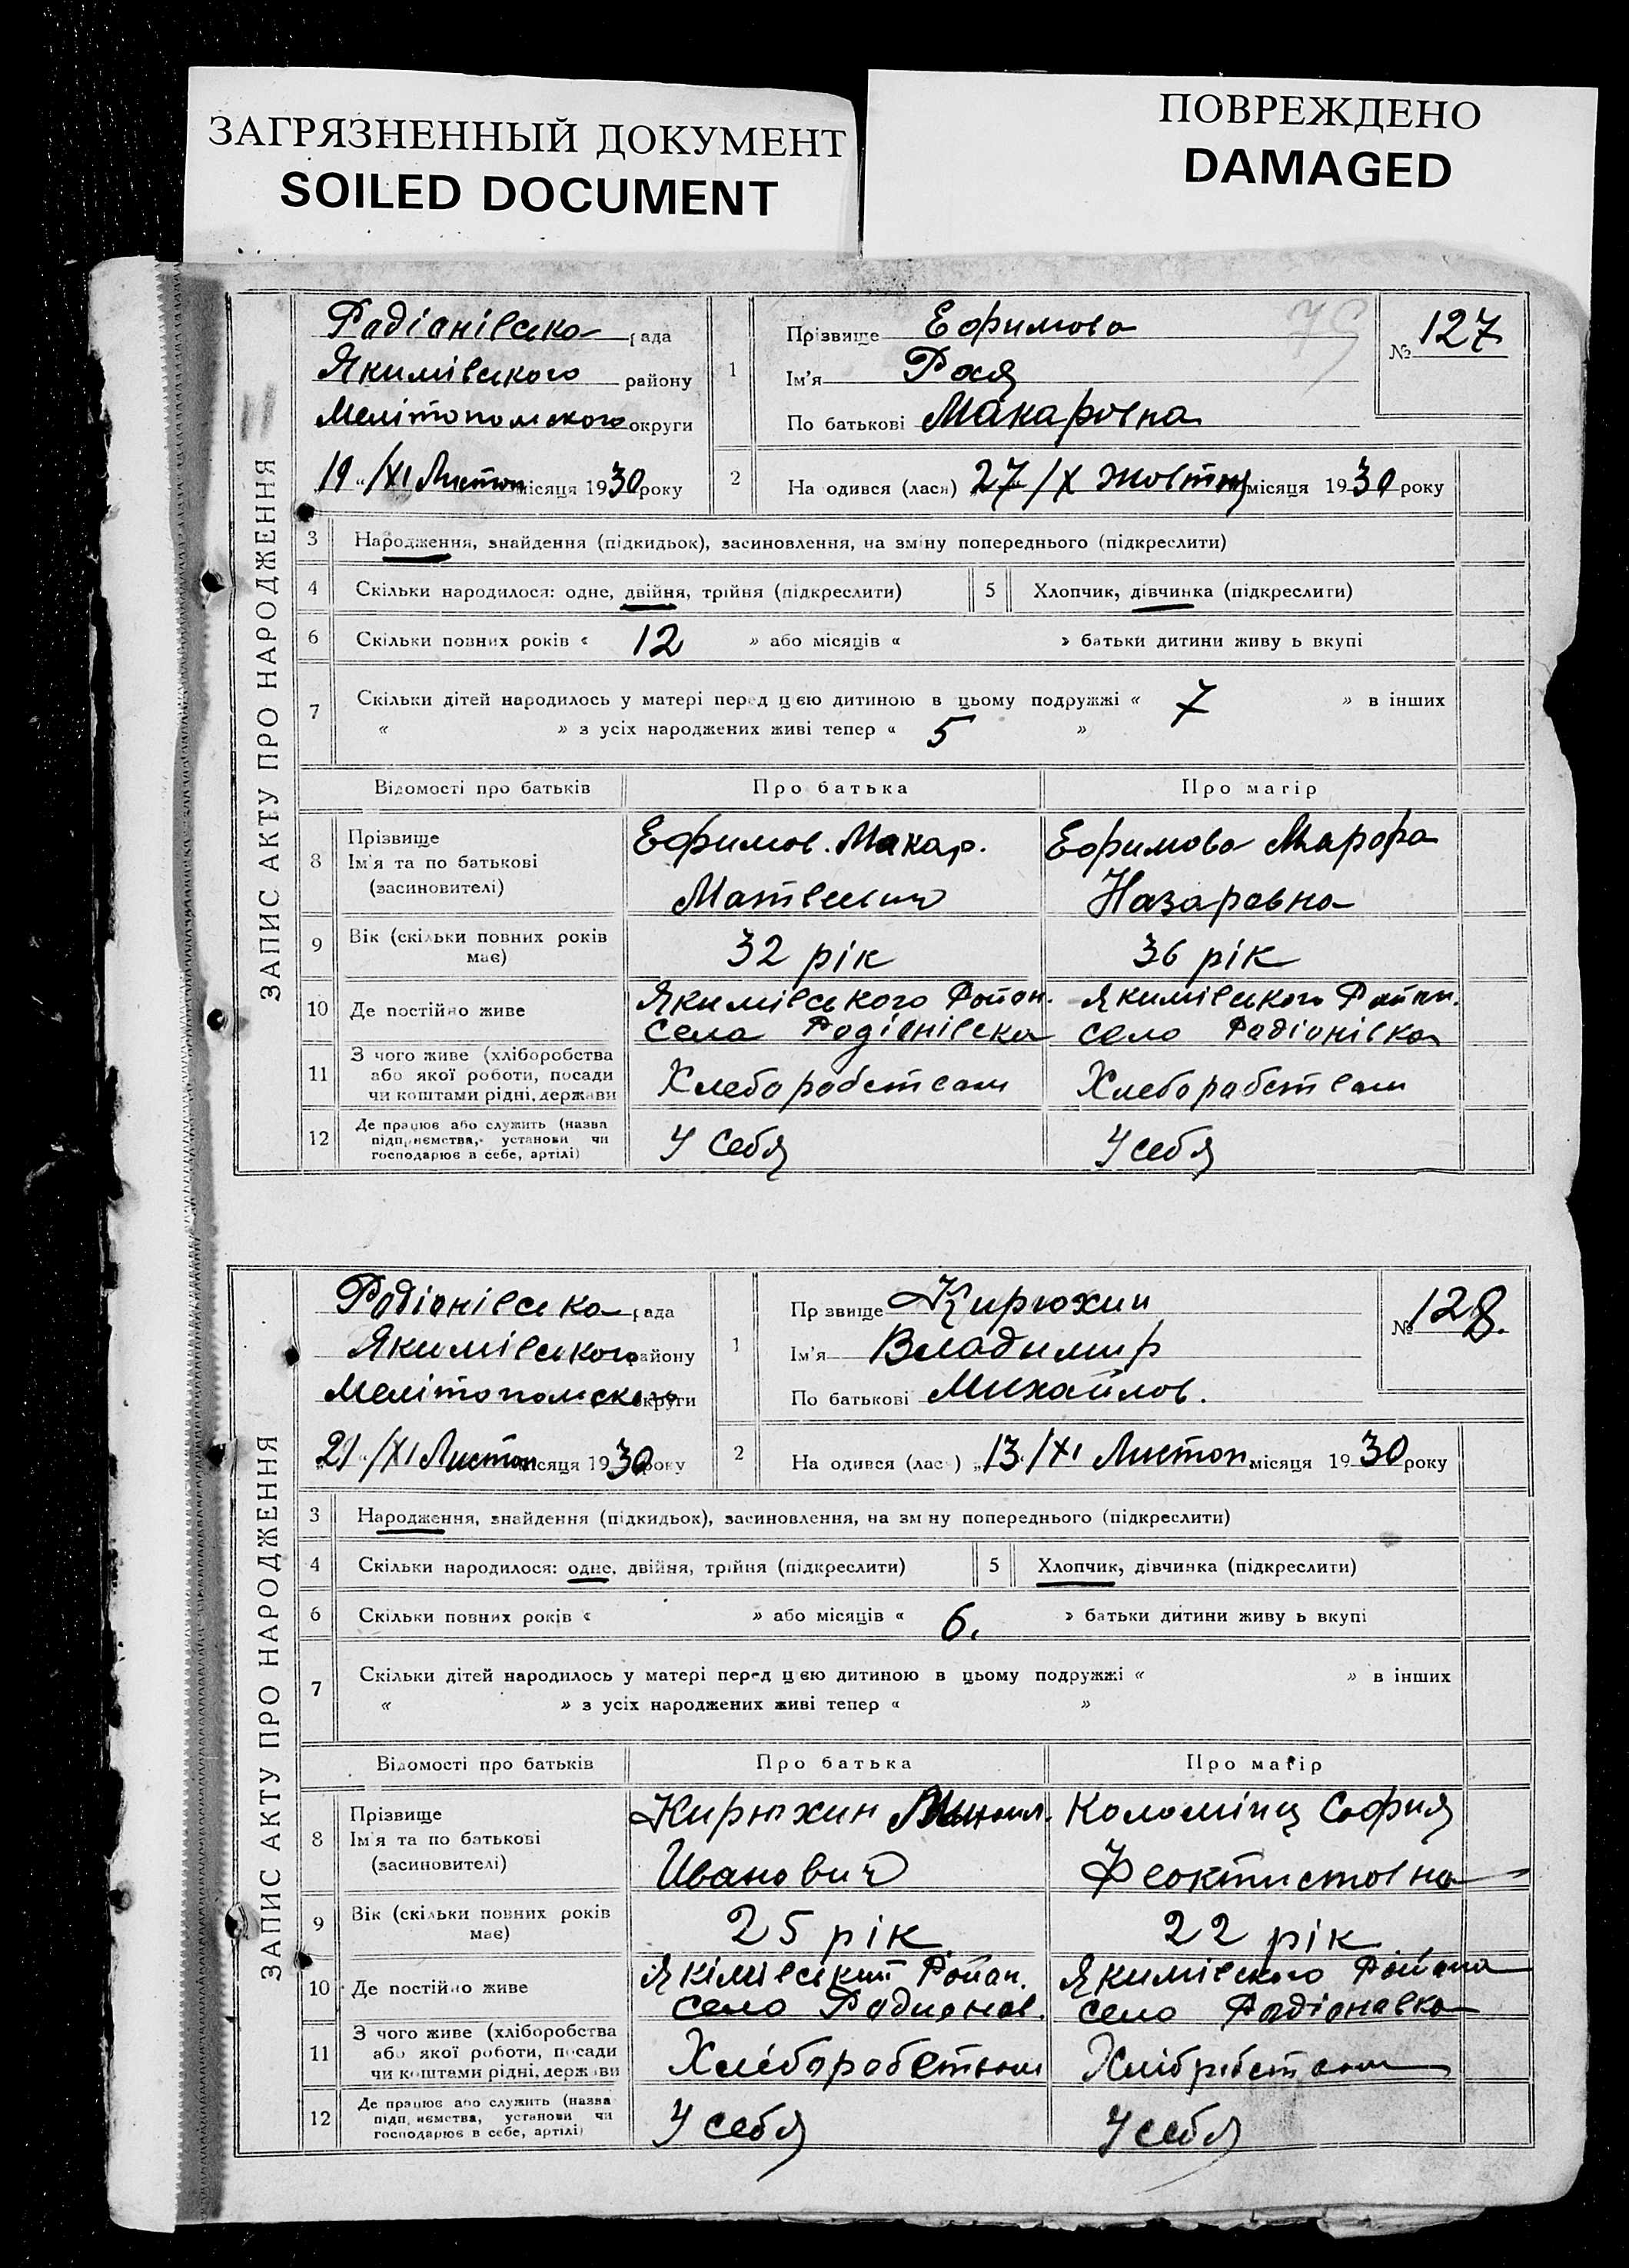 ЗАГРЯЗНЕННЫЙ ДОКУМЕНТ
SOILED DOCUMENT
ПОВРЕЖДЕНО
DAMAGED
ЗАПИС АКТУ ПРО НАРОДЖЕННЯ
Радіонівська рада
Якимівського району
Мелітопольского округи
19 /XI Листоп місяця 1930 року
1
Прізвище Ефимова
Ім'я Рая
По батькові Макаровна
№ 127
2
На одився (лася) 27/X Жовтня місяця 1930 року
3 Народження, знайдення (підкидьок), засиновлення, на зміну попереднього (підкреслити)
4 Скільки народилося: одне, двійня, трійня (підкреслити) 5 Хлопчик, дівчинка (підкреслити)
6 Скільки повних років « 12 » або місяців « » батьки дитини живу ь вкупі
7 Скільки дітей народилось у матері перед цією дитиною в цьому подружжі « 7 » в інших
« » з усіх народжених живі тепер « 5 »
Відомості про батьків Про батька Про матір
8 Прізвище
Ім'я та по батькові
(засиновителі)
Ефимов. Макар.
Матвеевич
Ефимова Марфа
Назаровна
9 Вік (скільки повних років
має)
32 рік
36 рік
10 Де постійно живе
Якимівського Район.
Села Радіонівска
Якимівського Район.
село Радіонівка
11 З чого живе (хліборобства
або якої роботи, посади
чи коштами рідні, держави
Хлеборобством
Хлеборабством
12 Де працює або служить (назва
підприємства, установи чи
господарює в себе, артілі)
У себя
У себя
ЗАПИС АКТУ ПРО НАРОДЖЕННЯ
Радіонівська рада
Якимівського району
Мелітопольского округи
21 /XI Листоп місяця 1930 року
1
Пр звище Кирюхин
Ім'я Владимир
По батькові Михайлов.
№ 128.
2
На одився (лас ) „13 /XI Листоп місяця 1930 року
3 Народження, знайдення (підкидьок), засиновлення, на зм ну попереднього (підкреслити)
4 Скільки народилося: одне, двійня, трійня (підкреслити) 5 Хлопчик, дівчинка (підкреслити)
6 Скільки повних років « » або місяців « 6. » батьки дитини живу ь вкупі
7 Скільки дітей народилось у матері перед цією дитиною в цьому подружжі « » в інших
« » з усіх народжених живі тепер « »
Відомості про батьків Про батька Про матір
8 Прізвище
Ім'я та по батькові
(засиновителі)
Кирюхин
Иванович
Коломіиц София
Феоктистовна
9 Вік (скільки повних років
має)
25 рік
22 рік
10 Де постійно живе
Якімівський Район.
село Радионов.
Якимівского Района
село Радіоновка
11 З чого живе (хліборобства
або якої роботи, посади
чи коштами рідні, держ ви
Хліборобством
12 Де працює або служить (назва
підп иємства, установи чи
господарює в себе, артілі)
У себя
У себя